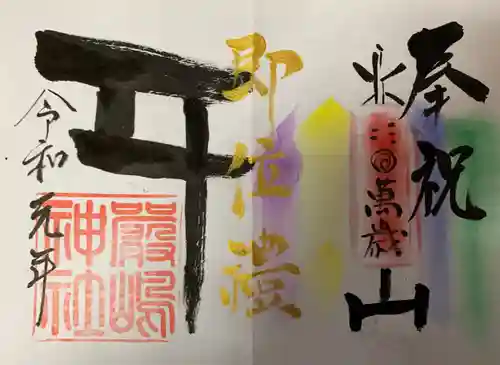 奉祝
山
萬歳
即位禮
嚴嶋
神社
令和元年